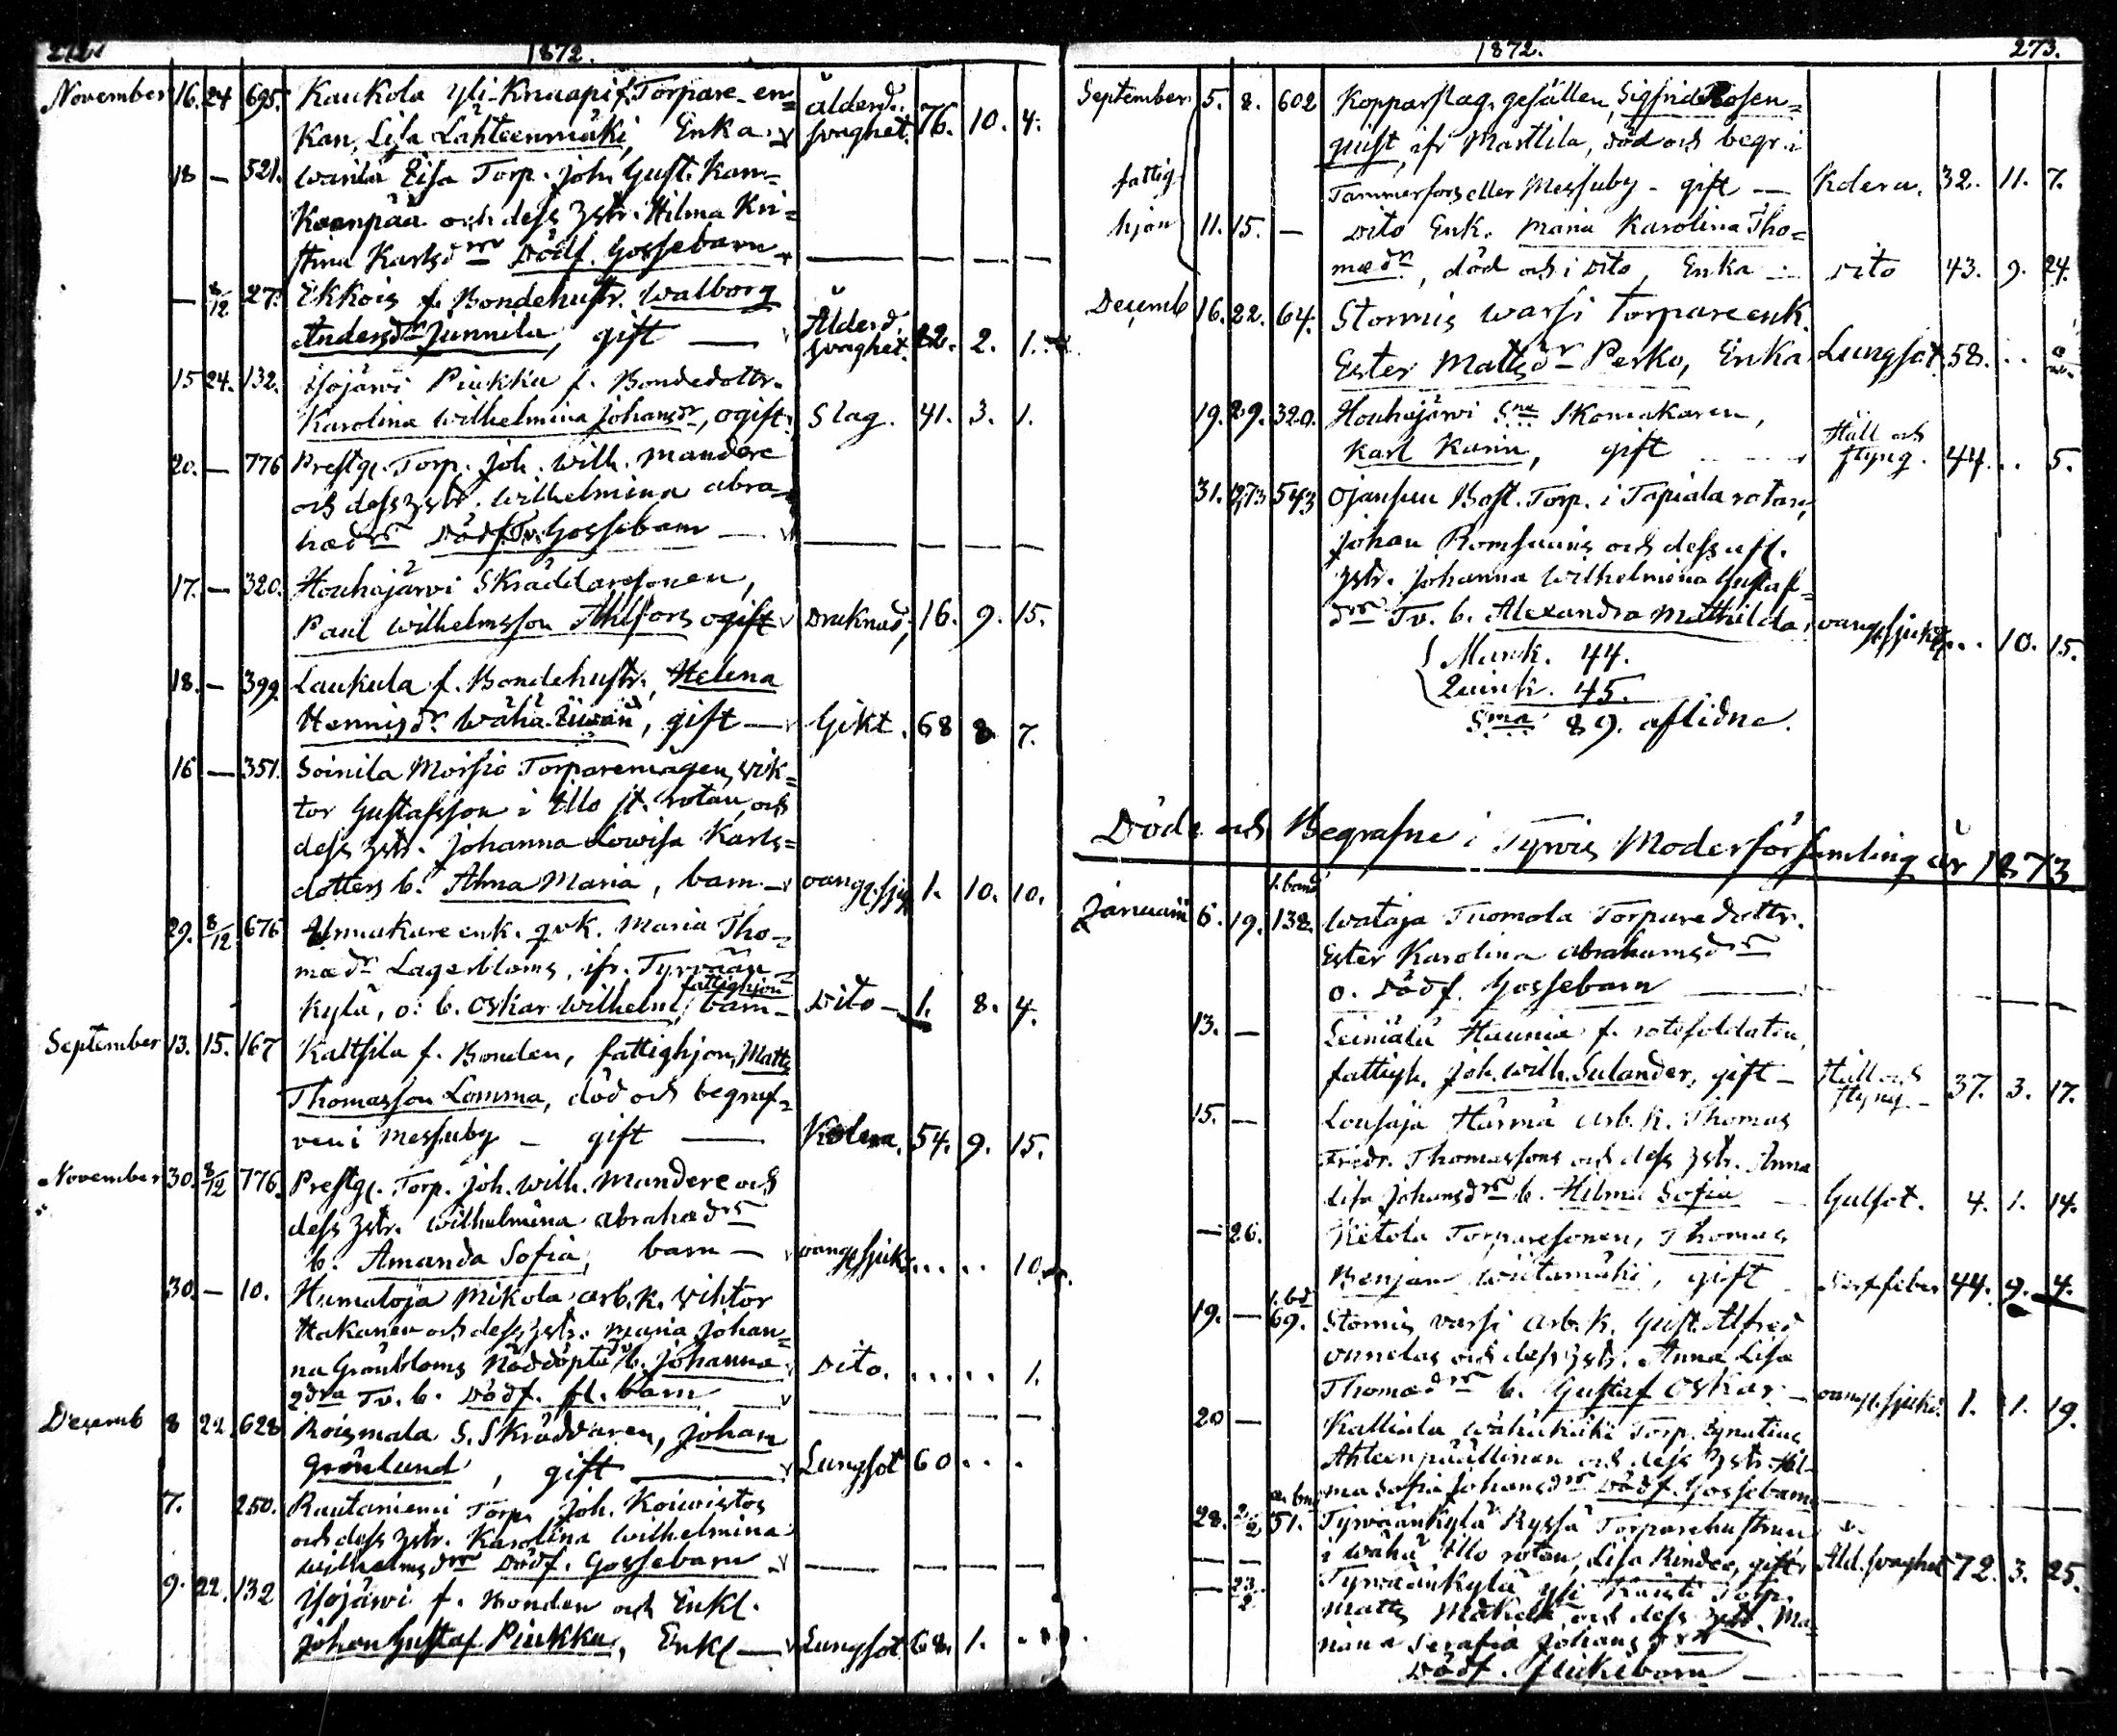 272. 1872.
November 16. 24 695. Kaukola Yli-Knaapi f. Torpare-en=
kan, Lisa Lähteenmäki, Enka. Ålderd. svaghet. 76. 10. 4.
18 — 521. Torp. Joh. Gust. Kan=
kaanpää och dess hstr. Hilma Kri=
stina Karlsdrs Dödf. Gossebarn — — — —
— 8/12 27. Ekkois f. Bondehustr. Walborg
Andersdr Junnila, gift — Ålderd. svaghet. 2. 1.
15 24. 132. Isojärwi Piukku f. Bondedottr.
Karolina Wilhelmina Johansdr, ogift. Slag. 41. 3. 1.
20. — 776 Prestg. Torp. Joh. Wilh. Mandere
och dess hstr. Wilhelmina Abra=
hamdrs Dödf. Tv. Gossebarn — — — — —
17. — 320. Houhajärvi Skräddaresonen,
Paul Wilhelmsson Ahlfors ogift Druknad, 16. 9. 15.
18. — 399. Laukula f. Bondehustr. Helena
Henriksdr Wähä, gift — Gikt. 68 8 7.
16 — 351. Soinila Moisio Torparemågen, Vik=
tor Gustafsson i Illo st. rotan, och
dess hstr. Johanna Lowisa Karls=
dotters b. Anna Maria, barn — 1. 10. 10.
29. 8/12 676 Urmakare enk. qvk. Maria Tho=
madr Lagerbloms, ifr. Tyrvään
fattighjon
kylä, o: b. Oskar Wilhelm, barn — Dito — 1. 8. 4.
September 13. 15. 167 Kaltsila f. Bonden, fattighjon, Matts
Thomasson Lomma, död och begraf=
ven i Messuby — gift — Kolera. 54. 9. 15.
November 30. 8/12 776. Prestg. Torp. Joh. Wilh. Mandere och
dess hstr. Wilhelmina Abrahadrs
b. Amanda Sofia, barn — . . . . . 10.
30. — 10. Humaloja Mikola arb.k. Viktor
Hakanen och dess hstr. Maria Johan=
na Grönbloms Nöddöpta b. Johanna Dito. . . . . . 1.
2dra Tv. b. Dödf. fl. barn — — — —
Decemb 8 22. 628 Roismala S. Skräddaren, Johan
Grönlund, gift — Lungsot 60 . . .
7. 250. Rautaniemi Torp. Joh. Koiwistos
och dess hstr. Karolina Wilhelmina
Wilhelmsdrs Dödf. Gossebarn — — — —
9. 22. 132 Isojärwi f. Bonden och Enkl.
Johan Gustaf Piukka, Enkl — Lungsot. 68. 1. . .
1872. 273.
September. 5. 8. 602 Kopparslag. gesällen, Sigfrid Rosen=
quist, ifr Marttila, död och begr. i
fattig- Tammerfors eller Messuby — gift — Kolera. 32. 11. 7.
hjon 11. 15. — Dito Enk. Maria Karolina Tho=
madr, död och i Dito, Enka — Dito 43. 9. 24.
Decemb 16. 22. 64. Stormis Warsi Torpareenk.
Ester Mattsdr Perko, Enka Lungsot. 58. . .
19. 29. 320. Houhajärvi Skomakaren,
Karl Karin, gift Håll och styng. 44. . . 5.
31. 543 Ojansuu Bost. Torp. i Tapiala rotan,
Johan Romsuins och dess afl.
hstr. Johanna Wilhelmina Gustaf=
drs Tv. b. Alexandra Mathilda, . . . 10. 15.
Mank. 44.
Quink. 45.
Sma 89. aflidne.
Döde och Begrafne i Tyrvis Moderförsamling år 1873
1. band
Januarii 6. 19. 138. Wataja Tuomola Torparedottr.
Ester Karolina Abrahamsdrs
o. Dödf. Gossebarn — — — —
13. — Leiniälä Haunia f. rotesoldaten,
fattigh. Joh. Wilh. Sulander, gift — Håll och styng — 37. 3. 17.
15. — Lousaja Härmä Arb.k. Thomas
Fredr. Thomassons och dess hstr. Anna
Lisa Johansdrs b. Hilma Sofia — Gulsot. 4. 1. 14.
— 26. Ketola Torparesonen, Thomas
Benjam. Wiitamäki, gift 44. 9. 4.
19. — 1. bd 69. Stormis Varsi Arb.k. Gust. Alfred
Onnelas och dess hstr. Anna Lisa
Thomadrs b. Gustaf Oskar — 1. 1. 19.
20 — Kalliala Wähäkäki Torp. Ignatius
Ahteenpäällinen och dess hstr. Hil-
ma Sofia Johansdrs Dödf. Gossebarn — — — —
28. 2/2 51. Tyrväänkylä Ryssä Torparehustrun
i Wähä Illo rotan, Lisa Rinder, gift Åld. svaghet 72. 3. 25.
— 23/2 Tyrväänkylä Yli Torp.
Matts och dess hstr. Ma=
riana Serafia Johansdrs
Dödf. flickebarn — — — —